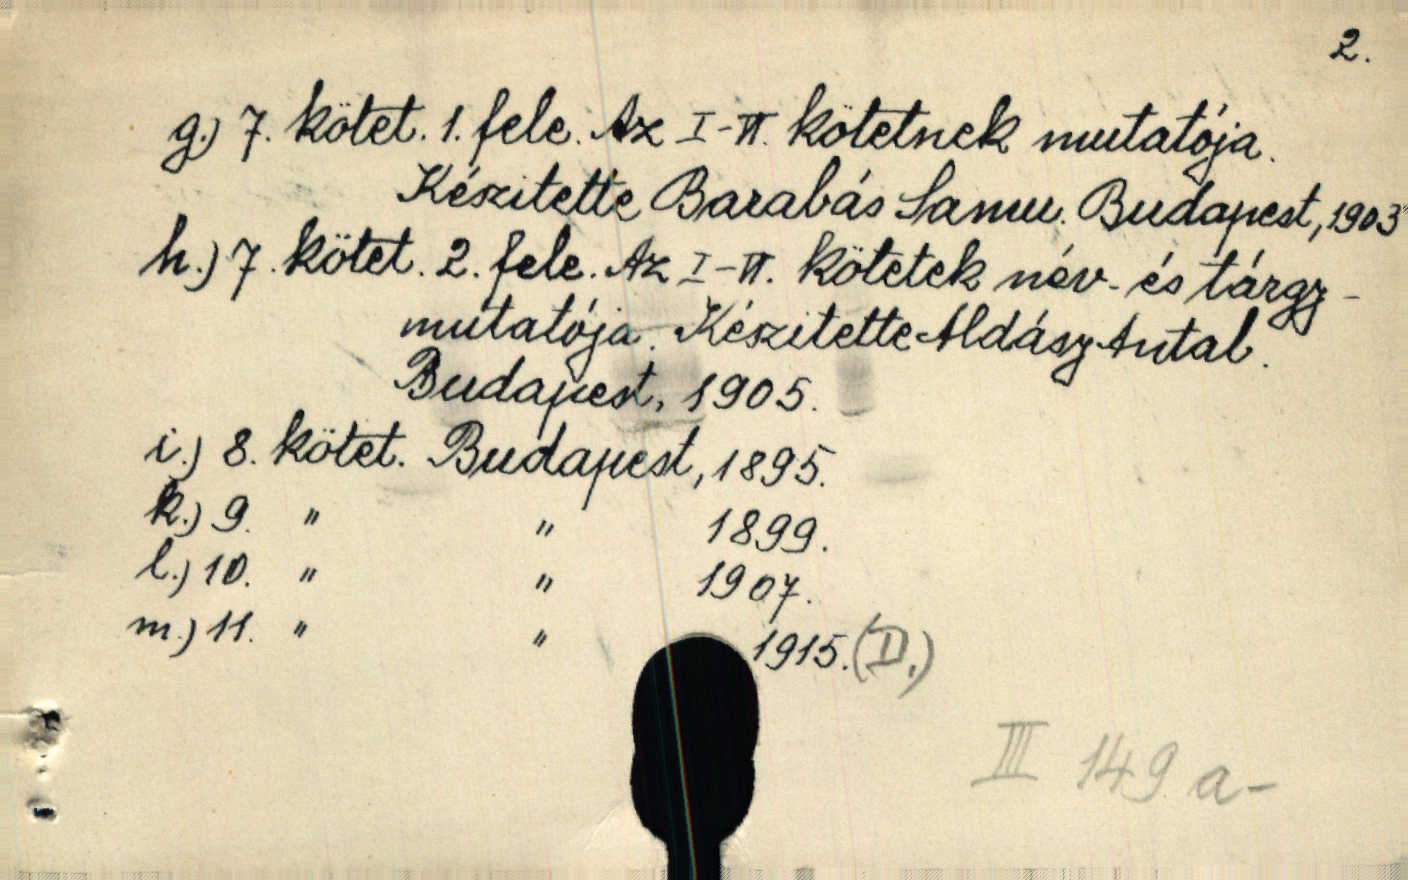 2.
g.) 7. kötet. 1. fele. Az I-VI. kötetnek mutatója.
Készitette Barabás Samu. Budapest, 1903
h.) 7. kötet. 2. fele. Az I-VI. kötetek név- és tárgy-
mutatója. Készitette Aldásy Antal.
Budapest, 1905.
i.) 8. kötet. Budapest, 1895.
k.) 9. " " 1899.
l.) 10. " " 1907.
m.) 11. " " 1915. (D.)
III 149 a-